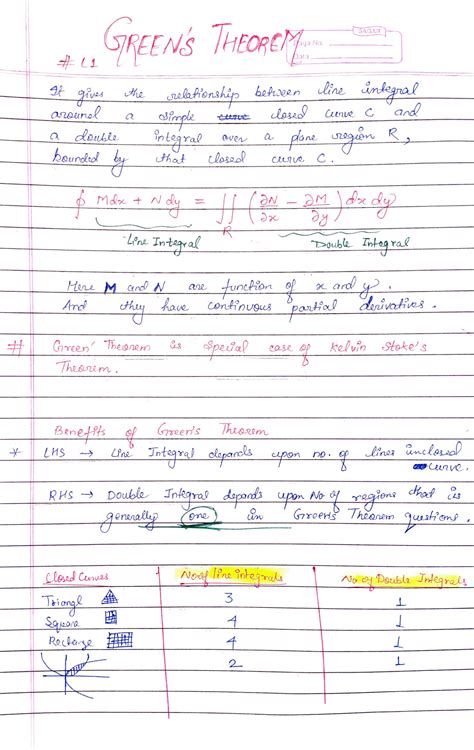 GREEN'S THEOREM
Page No.
Date
# L1
It gives the relationship between line integral
around a simple closed curve C and
a double integral over a plane region R,
bounded by that closed curve C.
∮ Mdx + Ndy = ∬ (∂N/∂x − ∂M/∂y) dx dy
R
Line Integral Double Integral
Here M and N are function of x and y.
And they have continuous partial derivatives.
# Green' Theorem is special case of Kelvin Stoke's
Theorem.
Benefits of Green's Theorem
* LHS → Line Integral depands upon no. of lines inclosed
curve.
RHS → Double Integral depands upon No of regions that is
generally one in Green's Theorem questions.
Closed Curves No of line integrals No of Double Integrals
Triangl 3 1
Square 4 1
4 1
2 1